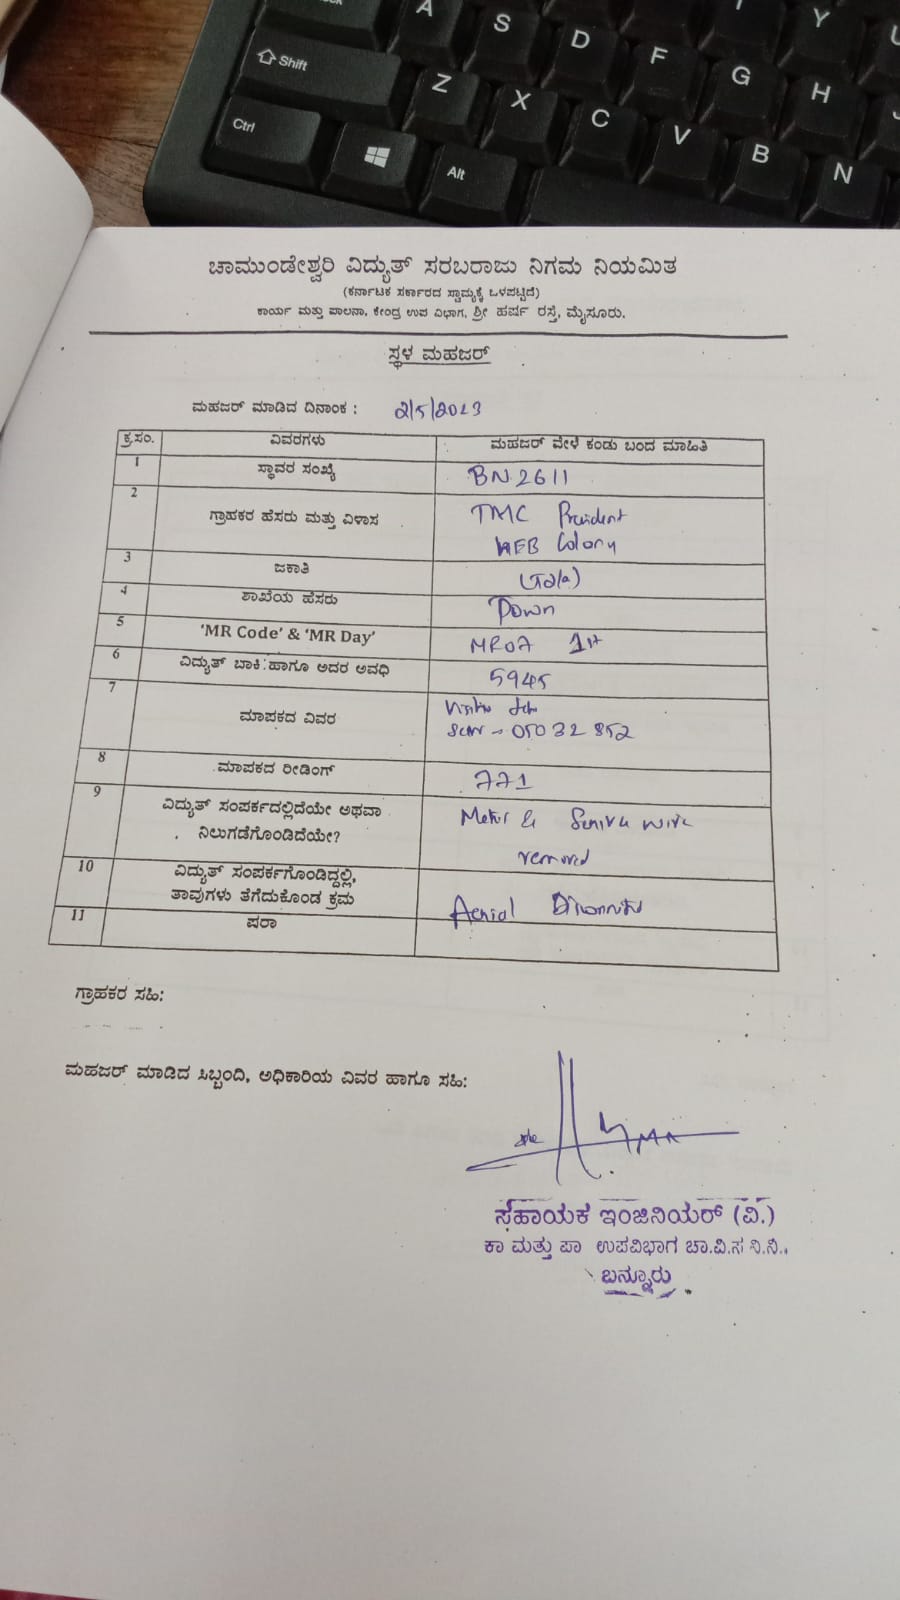 A S D F G H Y
Shift Z X C V B N
Ctrl Alt
ಚಾಮುಂಡೇಶ್ವರಿ ವಿದ್ಯುತ್ ಸರಬರಾಜು ನಿಗಮ ನಿಯಮಿತ
(ಕರ್ನಾಟಕ ಸರ್ಕಾರದ ಸ್ವಾಮ್ಯಕ್ಕೆ ಒಳಪಟ್ಟಿದೆ)
ಕಾರ್ಯ ಮತ್ತು ಪಾಲನಾ, ಕೇಂದ್ರ ಉಪ ವಿಭಾಗ, ಶ್ರೀ ಹರ್ಷ ರಸ್ತೆ, ಮೈಸೂರು.
ಸ್ಥಳ ಮಹಜರ್
ಮಹಜರ್ ಮಾಡಿದ ದಿನಾಂಕ : 2/5/2023
ಕ್ರ.ಸಂ. ವಿವರಗಳು ಮಹಜರ್ ವೇಳೆ ಕಂಡು ಬಂದ ಮಾಹಿತಿ
1 ಸ್ಥಾವರ ಸಂಖ್ಯೆ BN 2611
2 ಗ್ರಾಹಕರ ಹೆಸರು ಮತ್ತು ವಿಳಾಸ TMC President
Colony
3 ಜಕಾತಿ
4 ಶಾಖೆಯ ಹೆಸರು
5 'MR Code' & 'MR Day' MR07 1st
6 ವಿದ್ಯುತ್ ಬಾಕಿ ಹಾಗೂ ಅದರ ಅವಧಿ 5945
7 ಮಾಪಕದ ವಿವರ
05032852
8 ಮಾಪಕದ ರೀಡಿಂಗ್ 771
9 ವಿದ್ಯುತ್ ಸಂಪರ್ಕದಲ್ಲಿದೆಯೇ ಅಥವಾ Meter & Service wire
ನಿಲುಗಡೆಗೊಂಡಿದೆಯೇ? removed
10 ವಿದ್ಯುತ್ ಸಂಪರ್ಕಗೊಂಡಿದ್ದಲ್ಲಿ,
ತಾವುಗಳು ತೆಗೆದುಕೊಂಡ ಕ್ರಮ Aerial
11 ಷರಾ
ಗ್ರಾಹಕರ ಸಹಿ:
ಮಹಜರ್ ಮಾಡಿದ ಸಿಬ್ಬಂದಿ, ಅಧಿಕಾರಿಯ ವಿವರ ಹಾಗೂ ಸಹಿ:
ಸಹಾಯಕ ಇಂಜಿನಿಯರ್ (ವಿ.)
ಕಾ ಮತ್ತು ಪಾ ಉಪವಿಭಾಗ ಚಾ.ವಿ.ಸ.ನಿ.ನಿ.,
ಬನ್ನೂರು